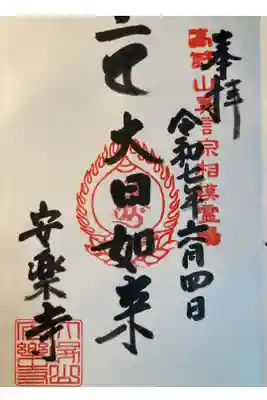 奉拝
高野山真言宗相模霊場
令和七年六月四日
大日如来
安楽寺